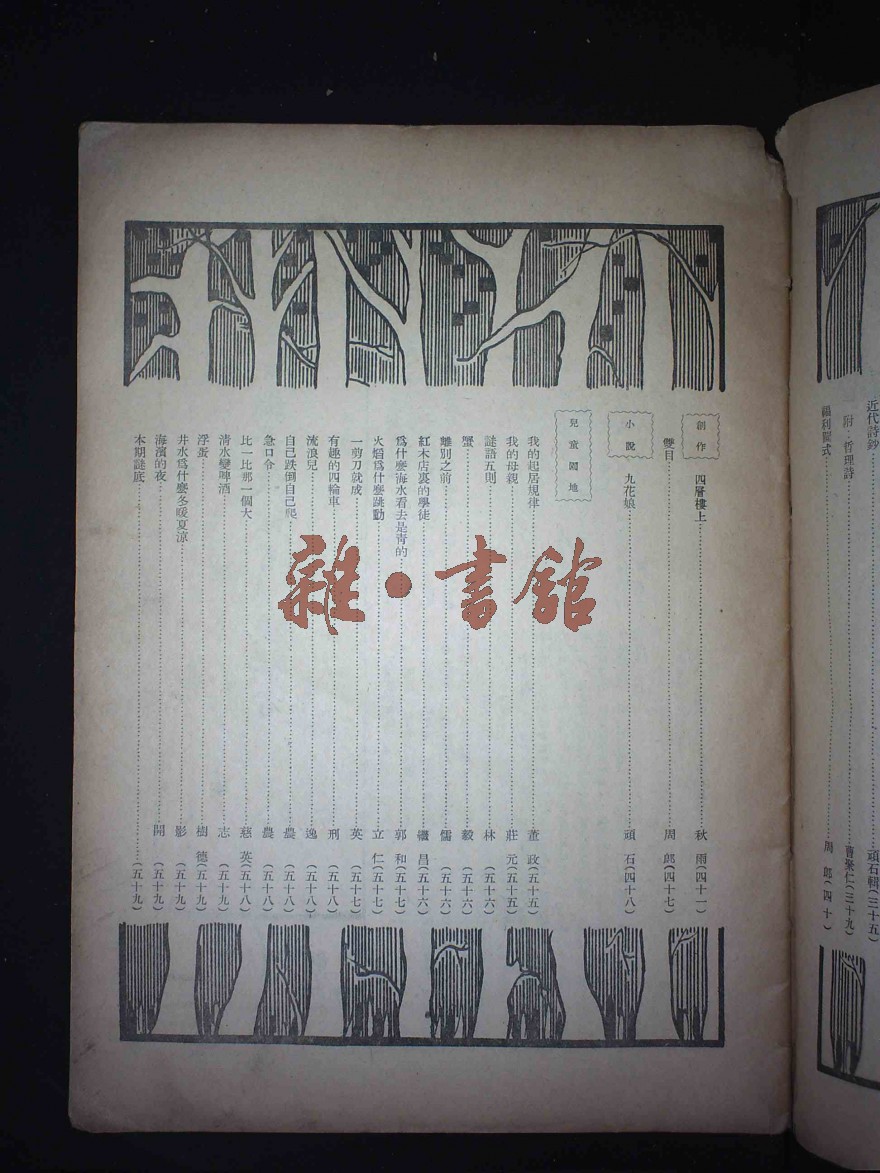 近代詩鈔……頑石輯(三十五)
附·哲理詩……曹聚仁(三十九)
周郎(四十)
創作
四層樓上……秋雨(四十一)
雙目……周郎(四十七)
小說
九花娘……頑石(四十八)
兒童園地
我的起居規律……董政(五十五)
我的母親……莊元(五十五)
謎語五則……林(五十六)
蟹……毅(五十六)
離別之前……儒(五十六)
紅木店裏的學徒……昌(五十六)
爲什麼海水看去是靑的……郭和(五十七)
火焰爲什麼跳動……立仁(五十七)
一剪刀就成……英(五十七)
有趣的四輪車……刑(五十八)
流浪兒……逸(五十八)
自己跌倒自己爬……農(五十八)
急口令……農(五十八)
比一比那一個大……慈英(五十八)
清水變啤酒……志(五十九)
浮蛋……樹德(五十九)
井水爲什麼冬暖夏涼……影(五十九)
海濱的夜……開(五十九)
本期謎底……(五十九)
雜·書館